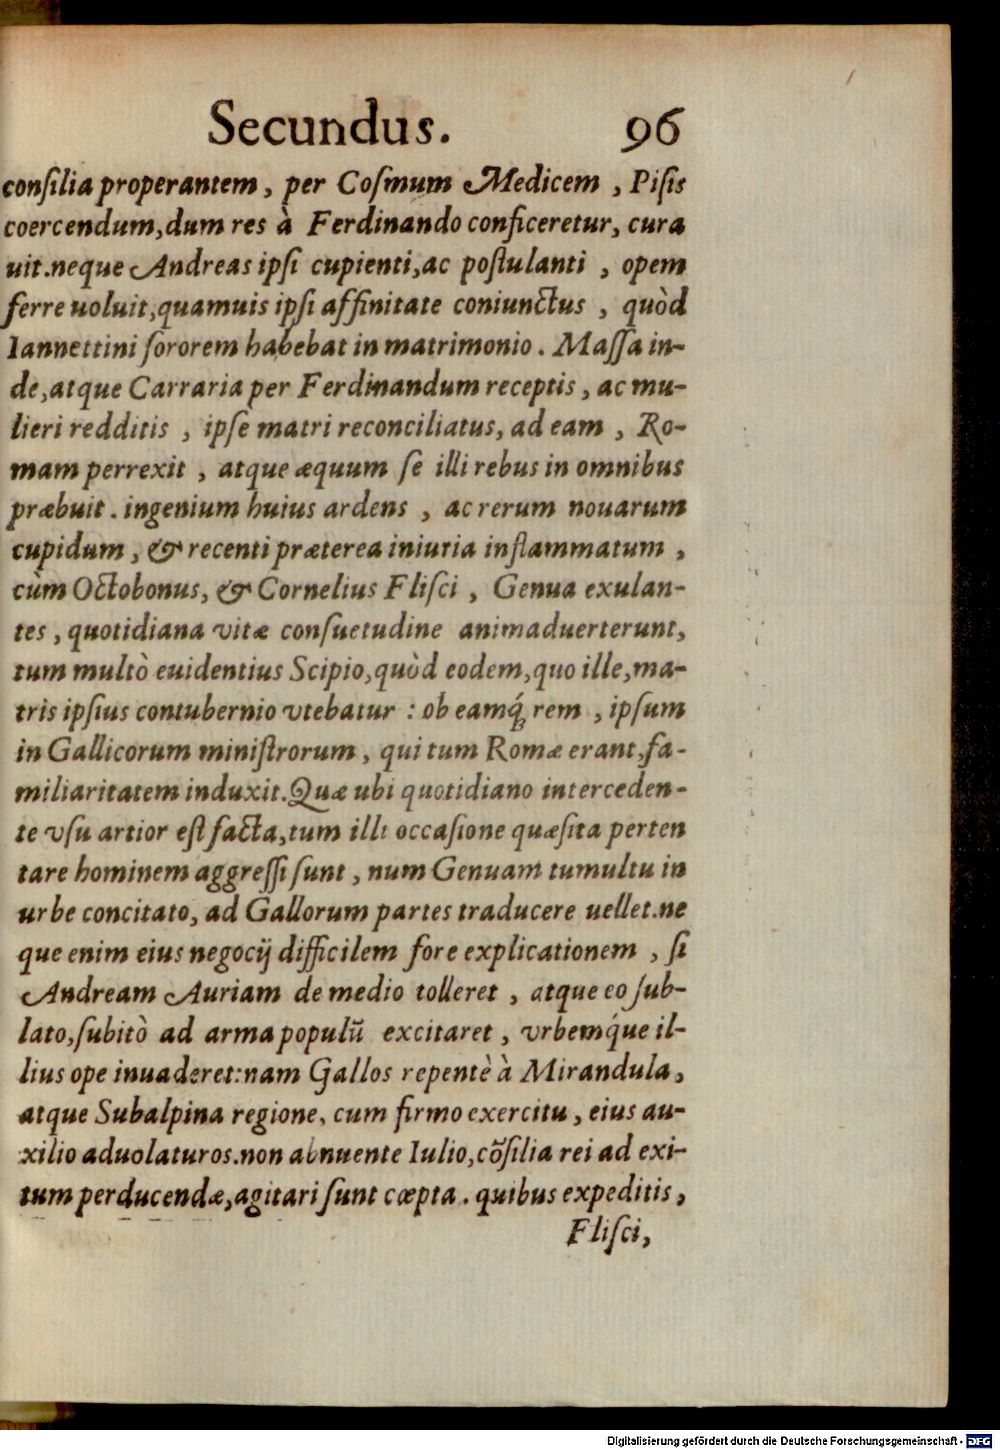 Secundus. 96
conſilia properantem, per Coſmum Medicem, Piſis
coercendum, dum res à Ferdinando conficeretur, cura
uit. neque Andreas ipſi cupienti, ac poſtulanti, opem
ferre uoluit, quamuis ipſi affinitate coniunctus, quòd
Iannettini ſororem habebat in matrimonio. Maſſa in-
de, atque Carraria per Ferdinandum receptis, ac mu-
lieri redditis, ipſe matri reconciliatus, ad eam, Ro-
mam perrexit, atque æquum ſe illi rebus in omnibus
præbuit. ingenium huius ardens, ac rerum nouarum
cupidum, & recenti præterea iniuria inflammatum,
cùm Octobonus, & Cornelius Fliſci, Genua exulan-
tes, quotidiana vitæ conſuetudine animaduerterunt,
tum multò euidentius Scipio, quòd eodem, quo ille, ma-
tris ipſius contubernio vtebatur: ob eamq́; rem, ipſum
in Gallicorum miniſtrorum, qui tum Romæ erant, fa-
miliaritatem induxit. Quæ ubi quotidiano interceden-
te vſu artior eſt facta, tum illi occaſione quæſita perten
tare hominem aggreſſi ſunt, num Genuam tumultu in
urbe concitato, ad Gallorum partes traducere uellet. ne
que enim eius negocij difficilem fore explicationem, ſi
Andream Auriam de medio tolleret, atque eo ſub-
lato, ſubitò ad arma populū excitaret, vrbemq́ue il-
lius ope inuaderet: nam Gallos repentè à Mirandula,
atque Subalpina regione, cum firmo exercitu, eius au-
xilio aduolaturos. non abnuente Iulio, cōſilia rei ad exi-
tum perducendæ, agitari ſunt cœpta. quibus expeditis,
Fliſci,
Digitalisierung gefördert durch die Deutsche Forschungsgemeinschaft - DFG